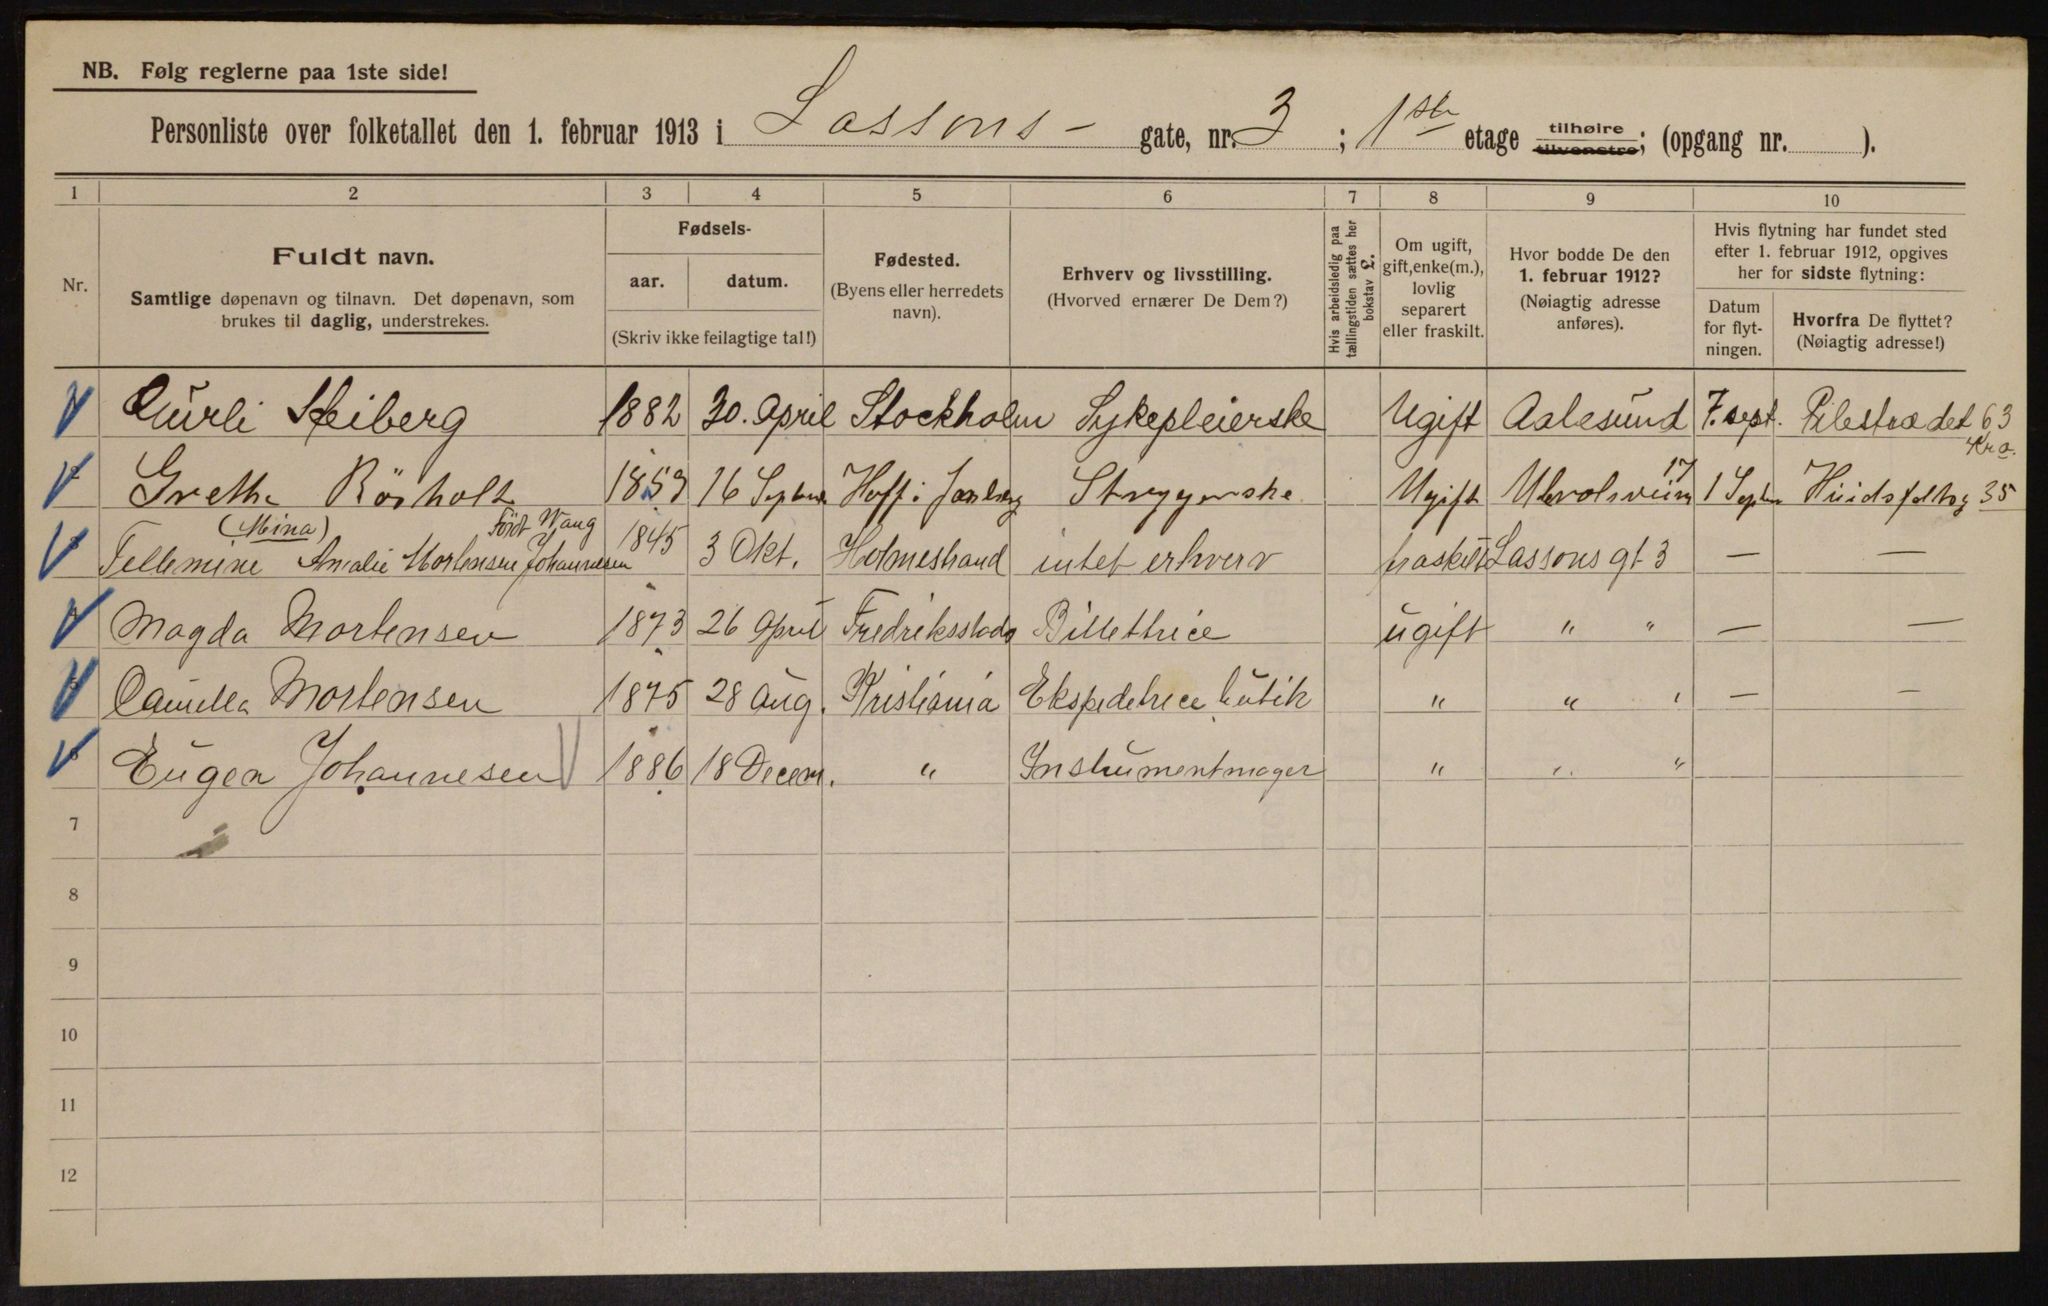 NB. Følg reglerne paa 1ste side!
Personliste over folketallet den 1. februar 1913 i Lassons- gate, nr. 3 ; 1ste etage tilhøire tilvenstre; (opgang nr. ).
1 2 3 4 5 6 7 8 9 10
Nr.
Fuldt navn.
Samtlige døpenavn og tilnavn. Det døpenavn, som
brukes til daglig, understrekes.
Fødsels-
aar. datum.
(Skriv ikke feilagtige tal!)
Fødested.
(Byens eller herredets
navn).
Erhverv og livsstilling.
(Hvorved ernærer De Dem?)
Hvis arbeidsledig paa
tællingstiden sættes her
bokstav £.
Om ugift,
gift, enke(m.),
lovlig
separert
eller fraskilt.
Hvor bodde De den
1. februar 1912?
(Nøiagtig adresse
anføres).
Hvis flytning har fundet sted
efter 1. februar 1912, opgives
her for sidste flytning:
Datum
for flyt-
ningen.
Hvorfra De flyttet?
(Nøiagtig adresse!)
Heiberg 1882 30. April Stockholm Sykepleierske Ugift Aalesund 7. sept. Pilestrædet 63
Kra.
Grethe Rösholt 1859 16 Septemb Hoff i Strygerske Ugift 17 1 Septm 35
(Mina) Født Wang
Tellemine Amalie Mortensen Johannesen 1845 3 Okt. Holmestrand intet erhverv fraskilt Lassons gt 3 — —
Magda Mortensen 1873 26 April Fredriksstad Billettrice ugift " " — —
Camilla Mortensen 1875 28 Aug. Kristiania Ekspeditrice butik " " " — —
Eugen Johannesen 1886 18 Decem. " Instrumentmager " " "
7
8
9
10
11
12